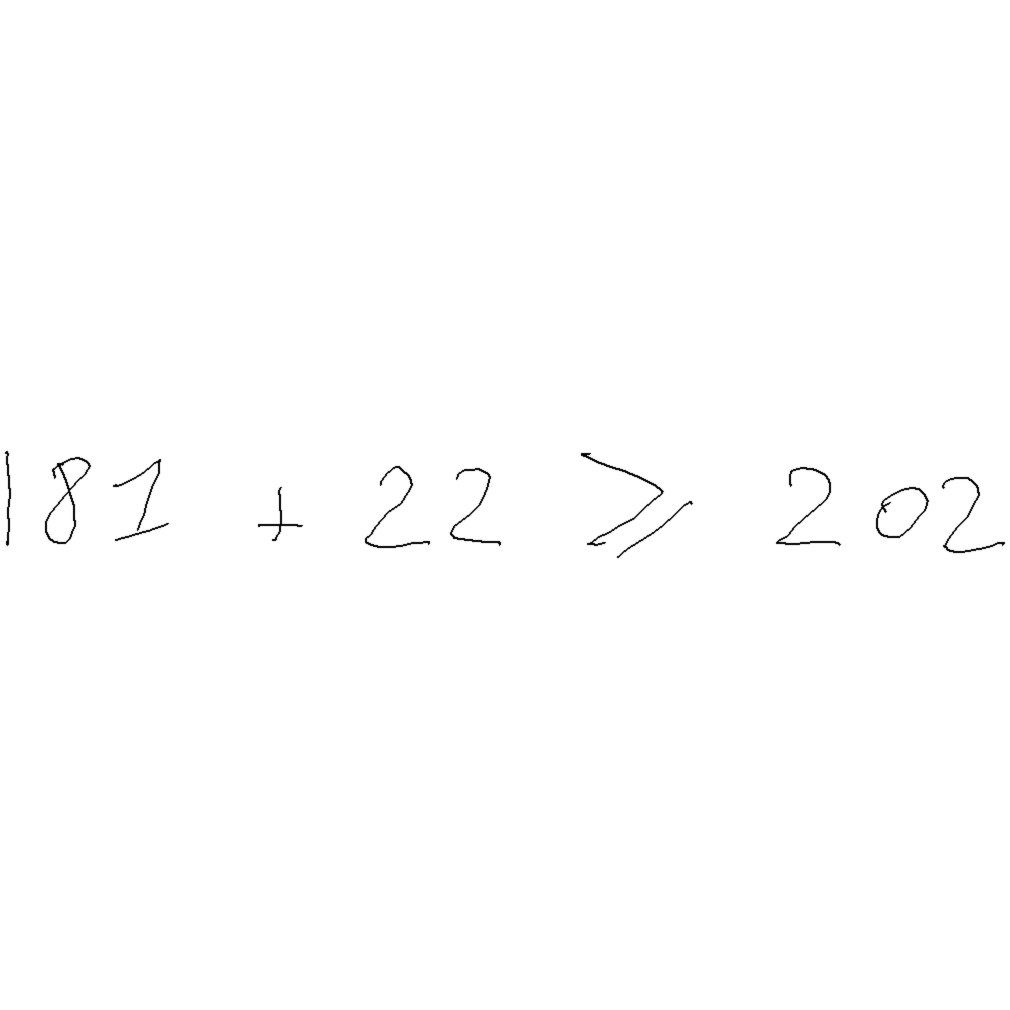 181 + 22 ⩾ 202